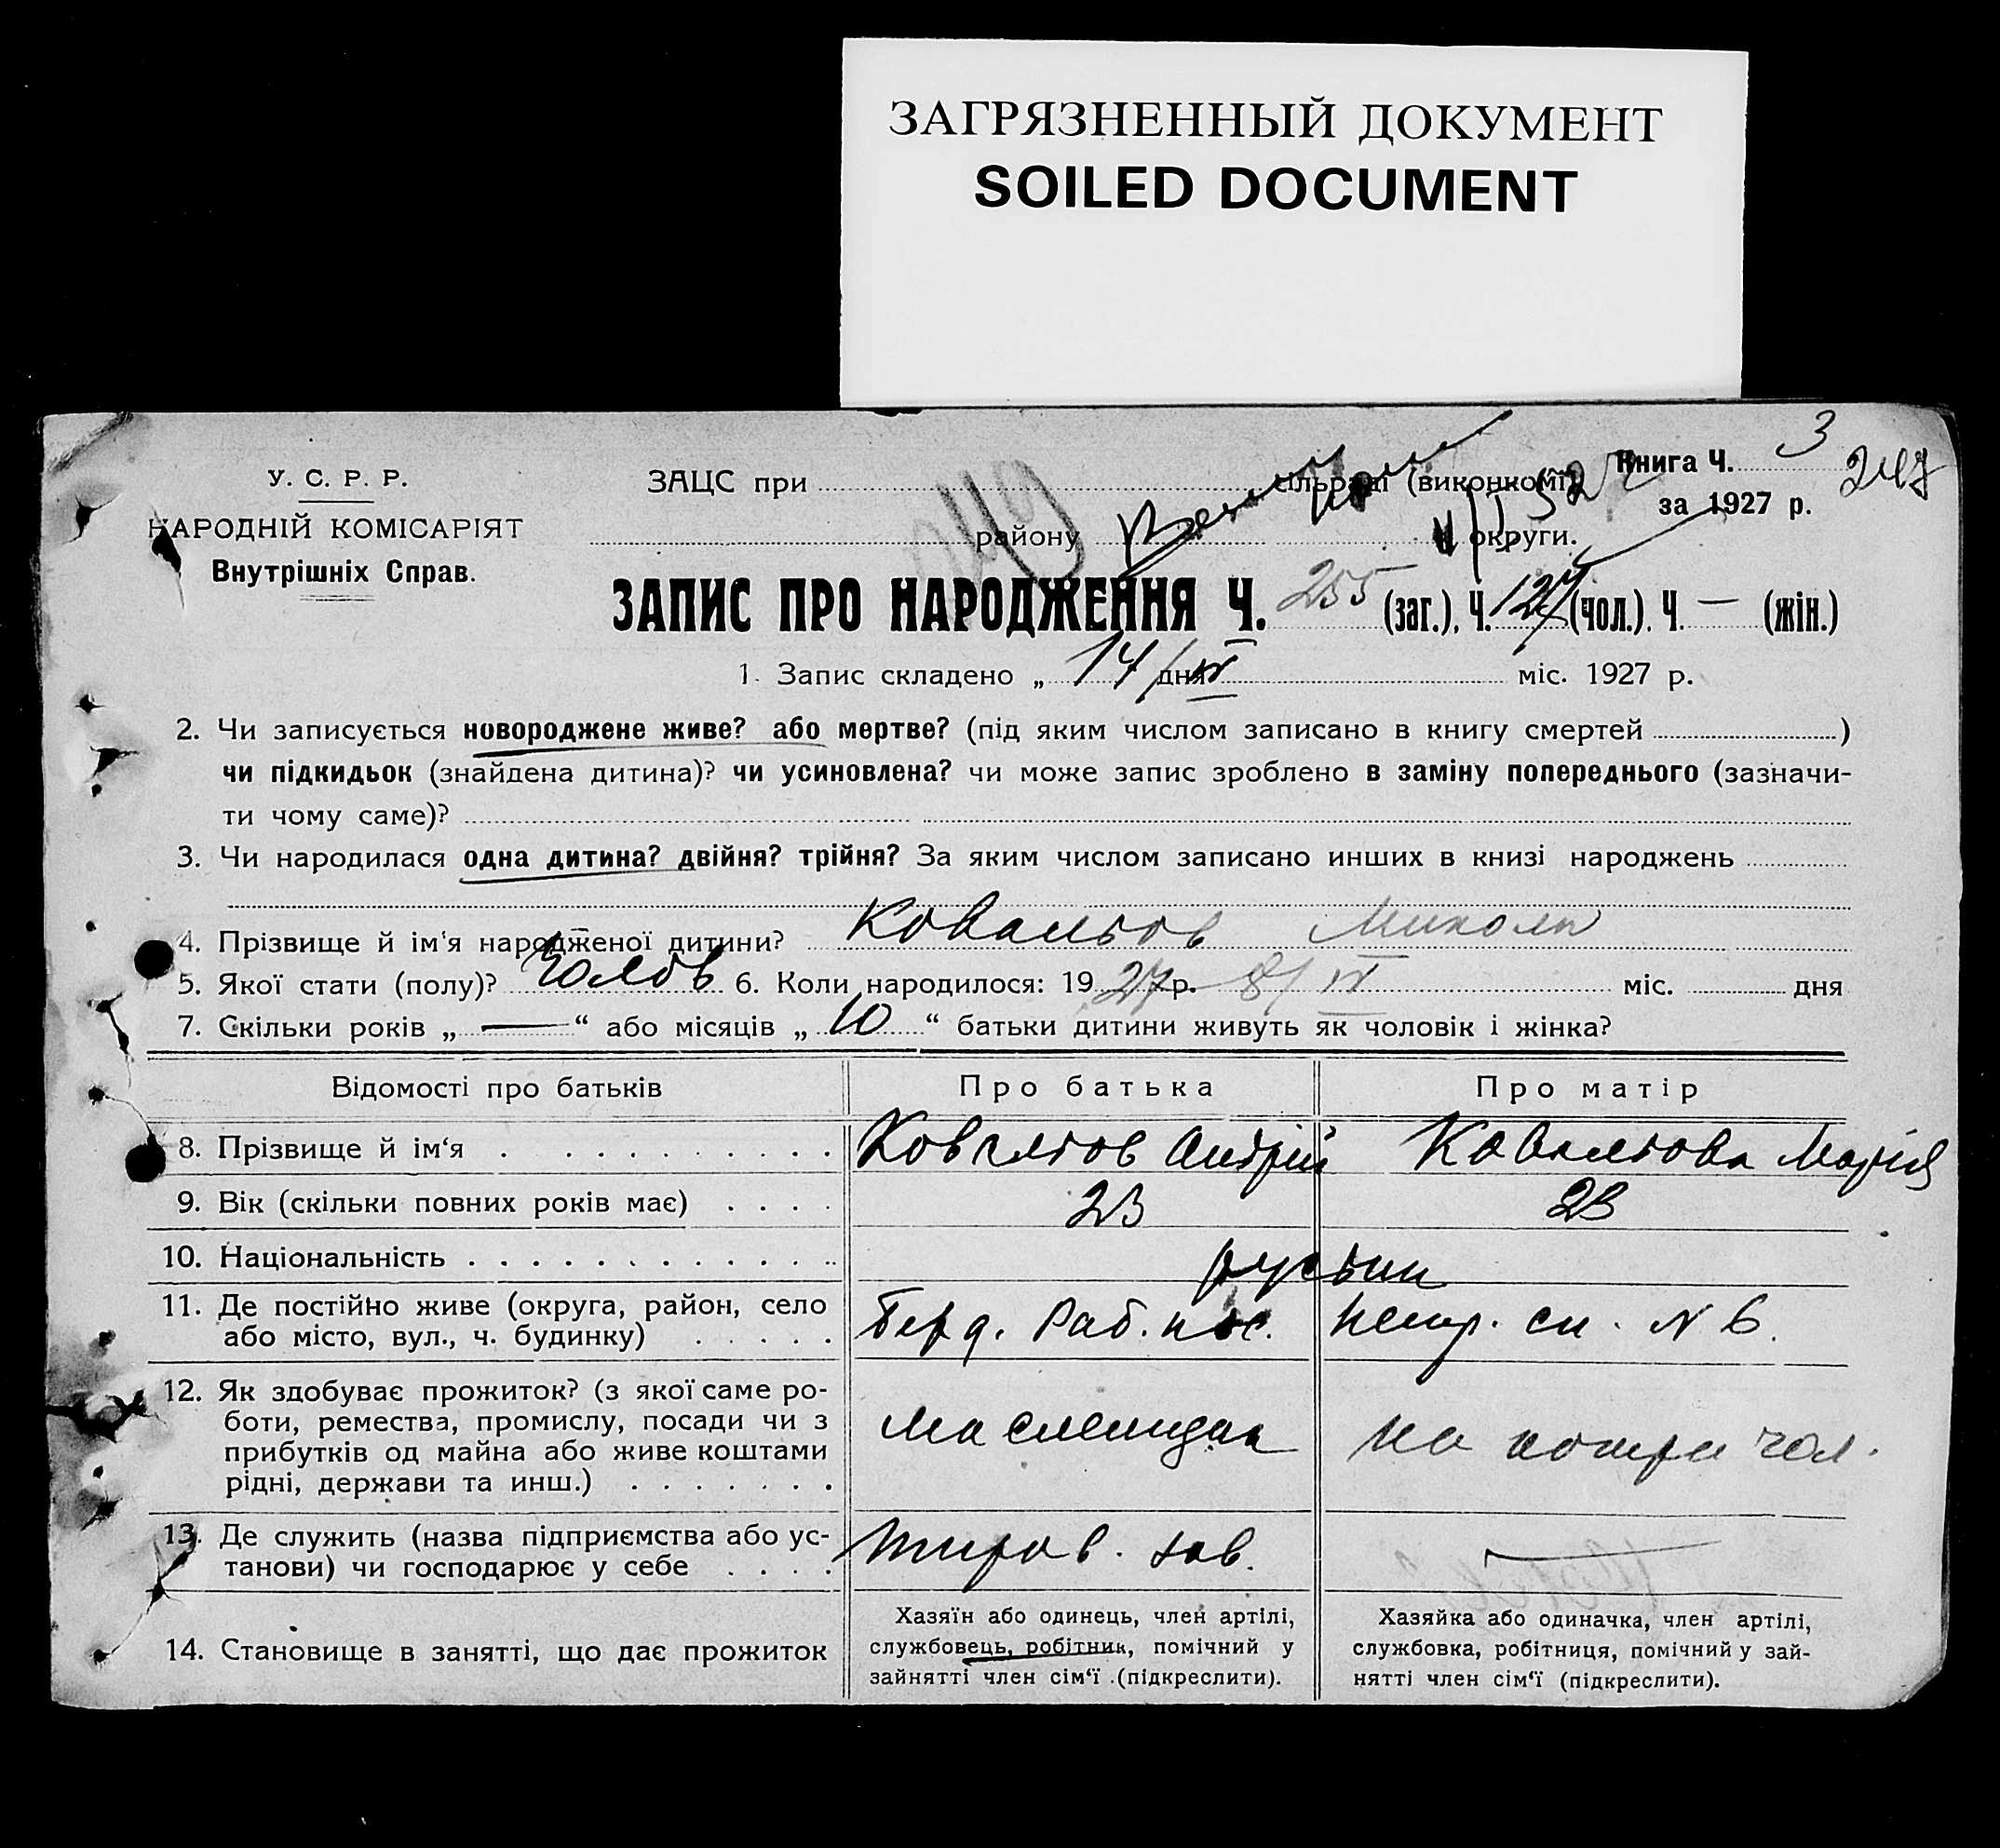 ЗАГРЯЗНЕННЫЙ ДОКУМЕНТ
SOILED DOCUMENT
У. С. Р. Р.
НАРОДНІЙ КОМІСАРІЯТ
Внутрішніх Справ.
Книга Ч. 3
247
за 1927 р.
ЗАЦС при сільраді (виконкомі)
району округи.
ЗАПИС ПРО НАРОДЖЕННЯ Ч. 255 (заг.), Ч. 127 (чол.), Ч. — (жін.)
1. Запис складено „ 14/ дня IV міс. 1927 р.
2. Чи записується новороджене живе? або мертве? (під яким числом записано в книгу смертей )
чи підкидьок (знайдена дитина)? чи усиновлена? чи може запис зроблено в заміну попереднього (зазначи-
ти чому саме)?
3. Чи народилася одна дитина? двійня? трійня? За яким числом записано инших в книзі народжень
4. Прізвище й ім'я народженої дитини? Ковальов Микола
5. Якої стати (полу)? Чолов 6. Коли народилося: 19 27 р. 8/IV міс. дня
7. Скільки років „ — “ або місяців „ 10 “ батьки дитини живуть як чоловік і жінка?
Відомості про батьків Про батька Про матір
8. Прізвище й ім‘я Ковальов Андрій Ковальова Марія
9. Вік (скільки повних років має) 23 23
10. Національність
11. Де постійно живе (округа, район, село
або місто, вул., ч. будинку) Раб. пос. № 6.
12. Як здобуває прожиток? (з якої саме ро-
боти, ремества, промислу, посади чи з
прибутків од майна або живе коштами
рідні, держави та инш.) на чол.
13. Де служить (назва підприємства або ус-
танови) чи господарює у себе зав. —
14. Становище в занятті, що дає прожиток
Хазяїн або одинець, член артілі,
службовець, робітник, помічний у
зайнятті член сім‘ї (підкреслити).
Хазяйка або одиначка, член артілі,
службовка, робітниця, помічний у зай-
нятті член сім‘ї (підкреслити).